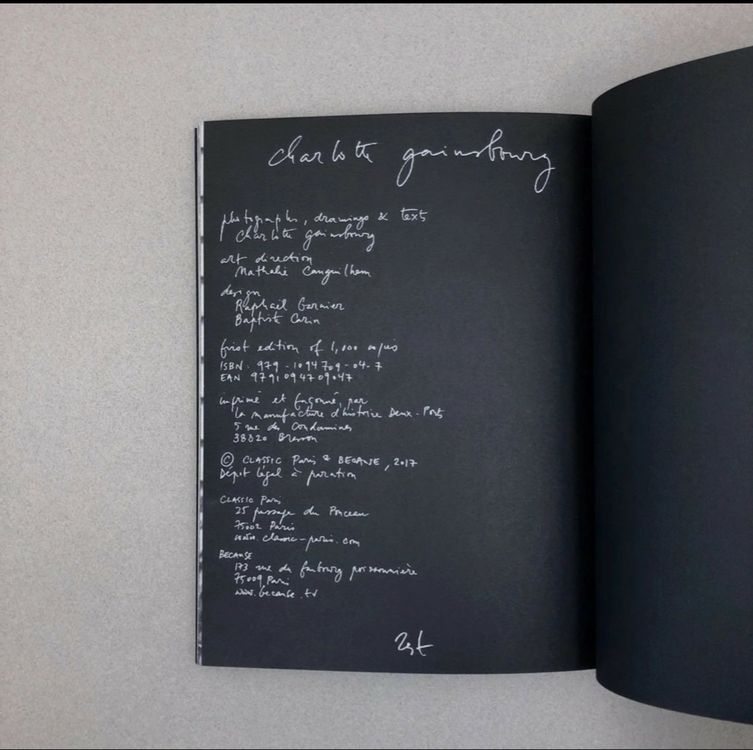 charlotte gainsbourg
photographs, drawings & text
charlotte gainsbourg
art direction
Nathalie Canguilhem
design
Raphaël Garnier
Baptiste Carin
first edition of 1,000 copies
ISBN. 979-1094709-04-7
EAN 9791094709047
imprimé et façonné, par
la manufacture d'histoire Deux-Ponts
5 rue des Condamines
38320 Bresson
© CLASSIC Paris & BECAUSE, 2017
Dépôt légal à parution
CLASSIC Paris
25 passage du Ponceau
75002 Paris
www.classic-paris.com
BECAUSE
173 rue du faubourg poissonnière
75009 Paris
www.because.tv